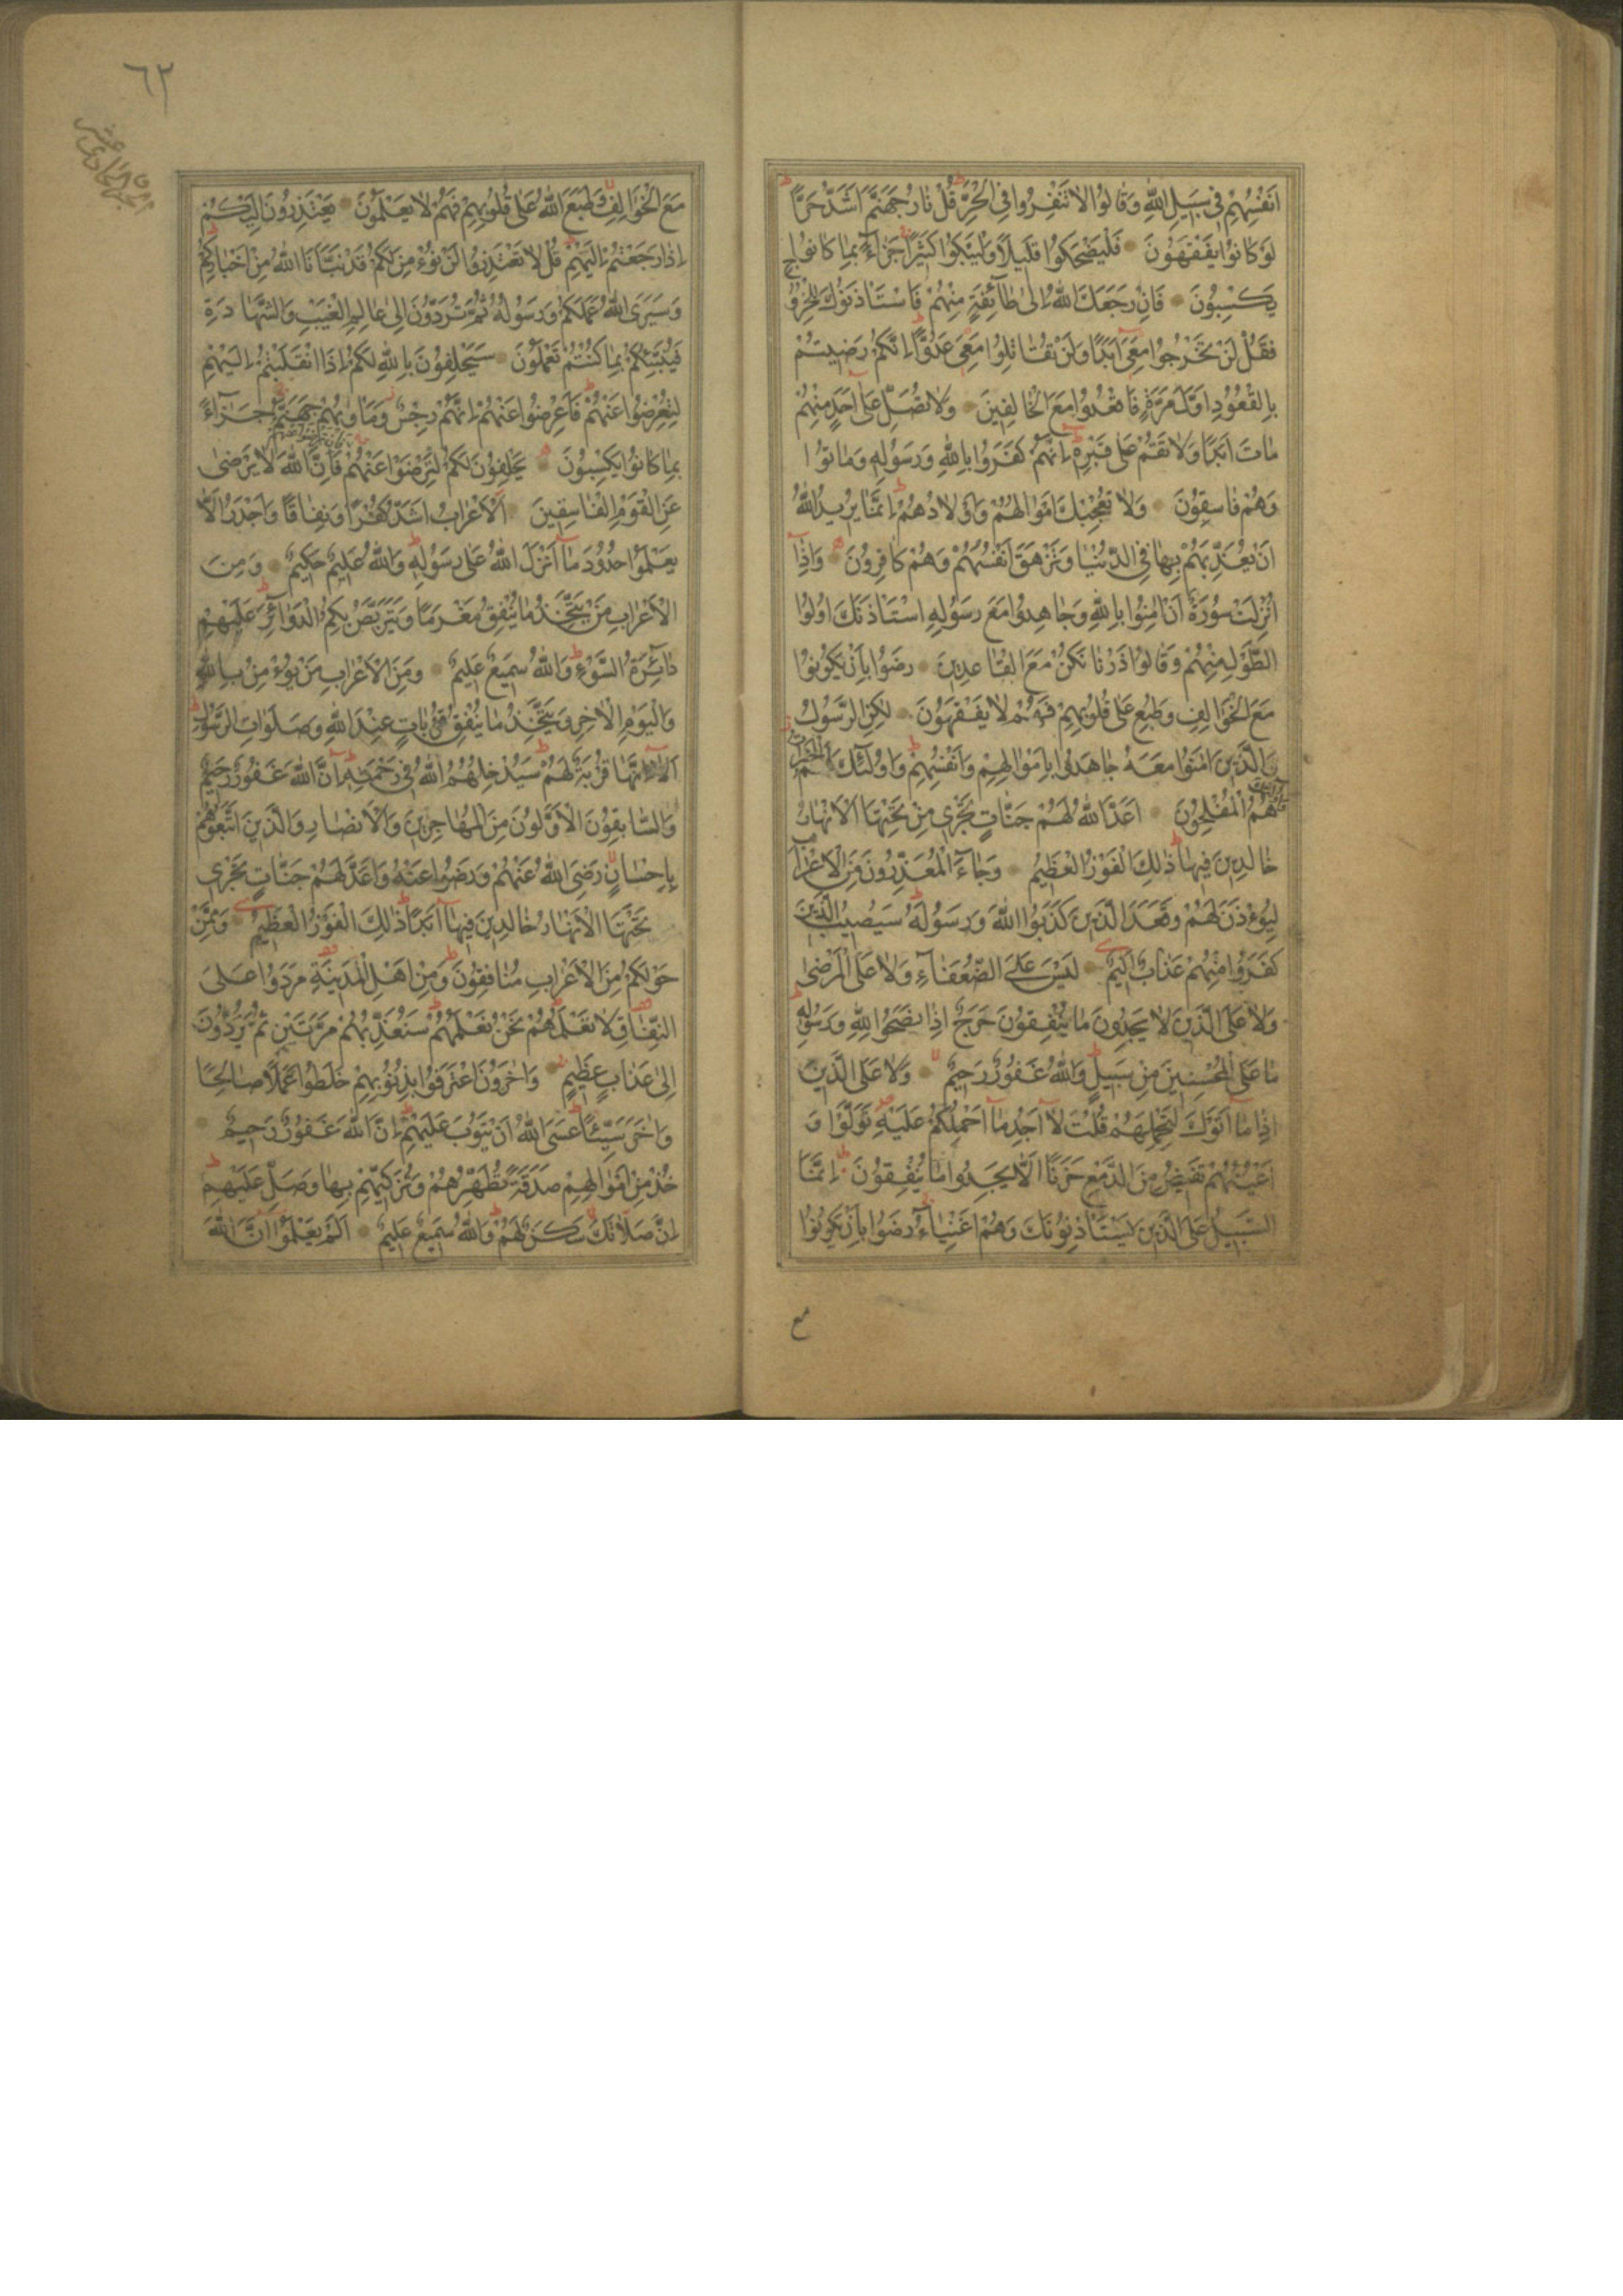 انفسهم في سبيل الله وقالوا لا تنفروا في الحر قل نار جهنم اشد حرا
لو كانوا يفقهون فليضحكوا قليلا وليبكوا كثيرا جزاء بما كانوا
يكسبون فان رجعك الله الى طائفة منهم فاستاذنوك للخروج
فقل لن تخرجوا معي ابدا ولن تقاتلوا معي عدوا انكم رضيتم
بالقعود اول مرة فاقعدوا مع الخالفين ولا تصل على احد منهم
مات ابدا ولا تقم على قبره انهم كفروا بالله ورسوله وماتوا
وهم فاسقون ولا تعجبك اموالهم واولادهم انما يريد الله
ان يعذبهم بها في الدنيا وتزهق انفسهم وهم كافرون واذا
انزلت سورة ان امنوا بالله وجاهدوا مع رسوله استاذنك اولوا
الطول منهم وقالوا ذرنا نكن مع القاعدين رضوا بان يكونوا
مع الخوالف وطبع على قلوبهم فهم لا يفقهون لكن الرسول
والذين امنوا معه جاهدوا باموالهم وانفسهم واولئك لهم الخيرات
واولئك هم المفلحون اعد الله لهم جنات تجري من تحتها الانهار
خالدين فيها ذلك الفوز العظيم وجاء المعذرون من الاعراب
ليؤذن لهم وقعد الذين كذبوا الله ورسوله سيصيب الذين
كفروا منهم عذاب اليم ليس على الضعفاء ولا على المرضى
ولا على الذين لا يجدون ما ينفقون حرج اذا نصحوا لله ورسوله
ما على المحسنين من سبيل والله غفور رحيم ولا على الذين
اذا ما اتوك لتحملهم قلت لا اجد ما احملكم عليه تولوا و
اعينهم تفيض من الدمع حزنا الا يجدوا ما ينفقون انما
السبيل على الذين يستاذنونك وهم اغنياء رضوا بان يكونوا
مع
٦٢
مع الخوالف وطبع الله على قلوبهم فهم لا يعلمون يعتذرون اليكم
اذا رجعتم اليهم قل لا تعتذروا لن نؤمن لكم قد نبانا الله من اخباركم
وسيرى الله عملكم ورسوله ثم تردون الى عالم الغيب والشهادة
فينبئكم بما كنتم تعملون سيحلفون بالله لكم اذا انقلبتم اليهم
لتعرضوا عنهم فاعرضوا عنهم انهم رجس وماويهم جهنم جزاء
بما كانوا يكسبون يحلفون لكم لترضوا عنهم فان ترضوا عنهم فان الله لا يرضى
عن القوم الفاسقين الاعراب اشد كفرا ونفاقا واجدر الا
يعلموا حدود ما انزل الله على رسوله والله عليم حكيم ومن
الاعراب من يتخذ ما ينفق مغرما ويتربص بكم الدوائر عليهم
دائرة السوء والله سميع عليم ومن الاعراب من يؤمن بالله
واليوم الاخر ويتخذ ما ينفق قربات عند الله وصلوات الرسول
الا انها قربة لهم سيدخلهم الله في رحمته ان الله غفور رحيم
والسابقون الاولون من المهاجرين والانصار والذين اتبعوهم
باحسان رضي الله عنهم ورضوا عنه واعد لهم جنات تجري
تحتها الانهار خالدين فيها ابدا ذلك الفوز العظيم وممن
حولكم من الاعراب منافقون ومن اهل المدينة مردوا على
النفاق لا تعلمهم نحن نعلمهم سنعذبهم مرتين ثم يردون
الى عذاب عظيم واخرون اعترفوا بذنوبهم خلطوا عملا صالحا
واخر سيئا عسى الله ان يتوب عليهم ان الله غفور رحيم
خذ من اموالهم صدقة تطهرهم وتزكيهم بها وصل عليهم
ان صلاتك سكن لهم والله سميع عليم الم يعلموا ان الله